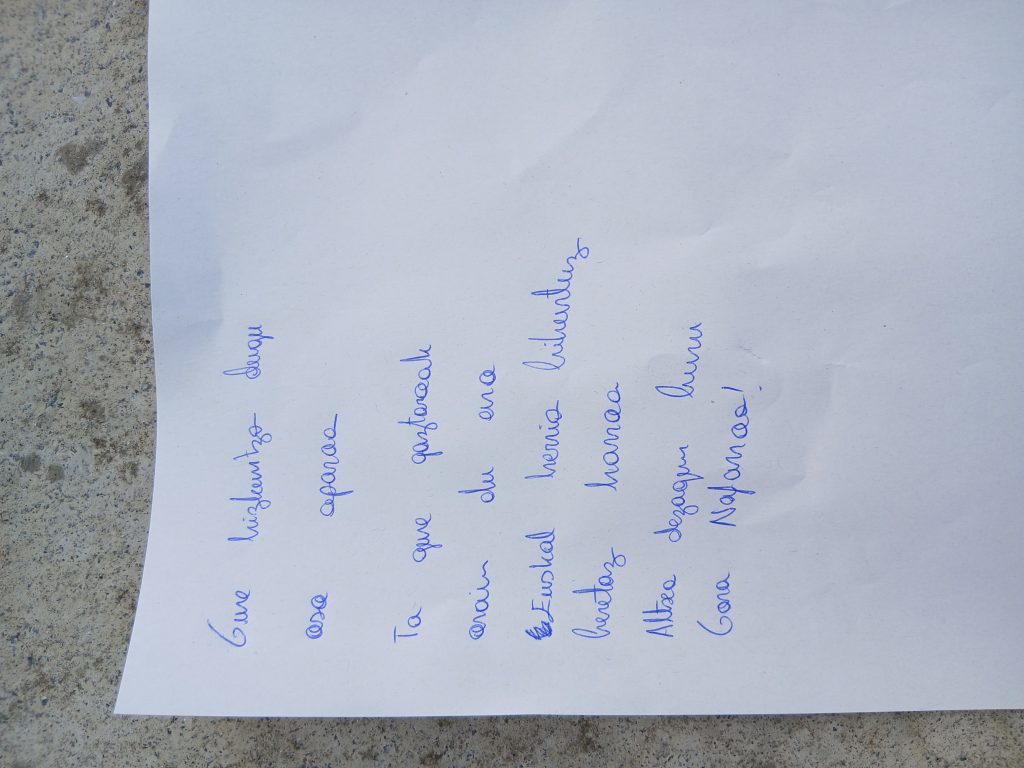 Gure hizkuntza dugu
oso aparoa
Ta gure gaztaroak
orain du aroa
Euskal herria bihurtuz
beretaz harroa
Altxa dezagun buru
Gora Nafarroa!